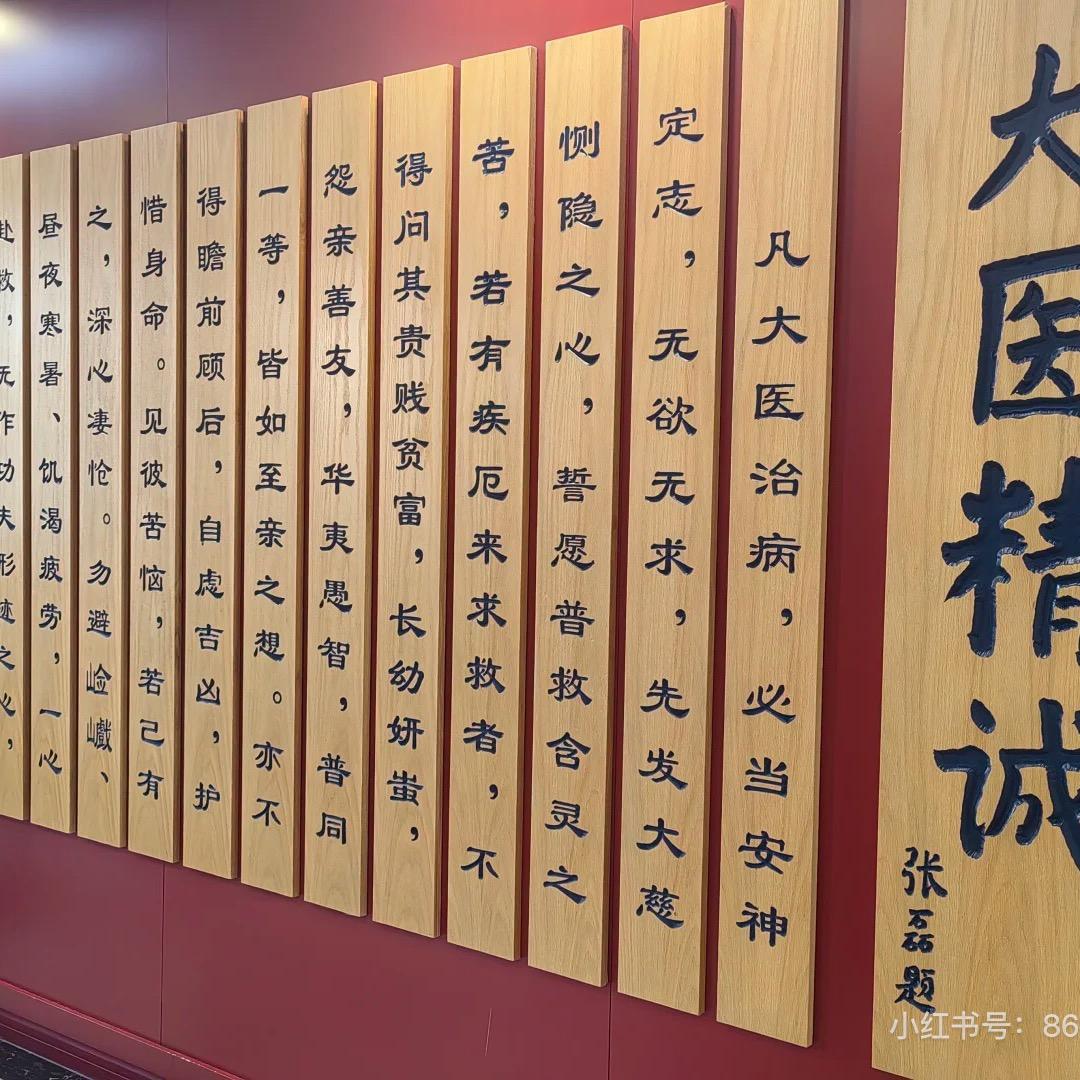 大医精诚
张磊题
凡大医治病，必当安神
定志，无欲无求，先发大慈
恻隐之心，誓愿普救含灵之
苦，若有疾厄来求救者，不
得问其贵贱贫富，长幼妍蚩，
怨亲善友，华夷愚智，普同
一等，皆如至亲之想。亦不
得瞻前顾后，自虑吉凶，护
惜身命。见彼苦恼，若己有
之，深心凄怆。勿避崄巇、
昼夜寒暑、饥渴疲劳，一心
赴救，无作功夫形迹之心，
小红书号：86